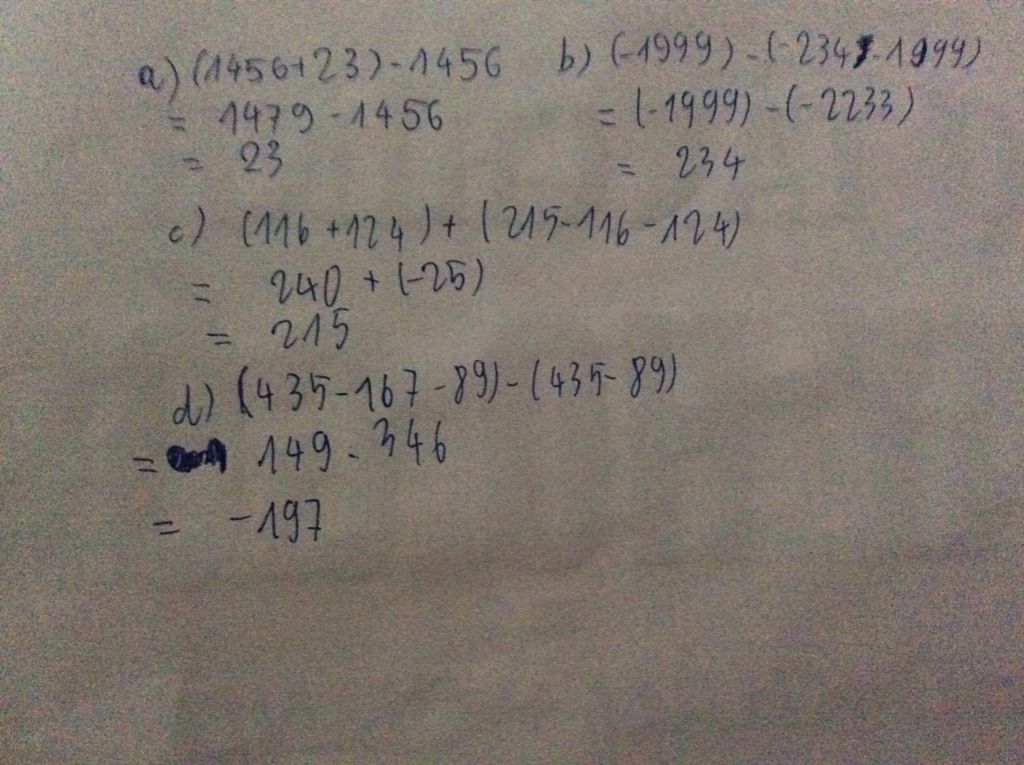 a) (1456+23)-1456
= 1479-1456
= 23
b) (-1999)-(-234-1999)
= (-1999)-(-2233)
= 234
c) (116+124)+(215-116-124)
= 240+(-25)
= 215
d) (435-167-89)-(435-89)
= 149-346
= -197